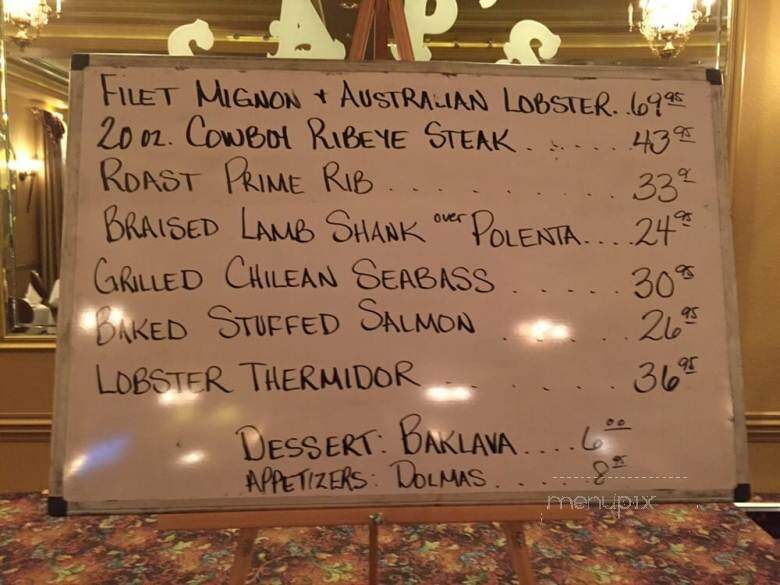 CAP'S
FILET MIGNON + AUSTRALIAN LOBSTER..69 95
20 oz. COWBOY RIBEYE STEAK......43 95
ROAST PRIME RIB.........33 9
BRAISED LAMB SHANK over POLENTA....24 95
GRILLED CHILEAN SEABASS.....30 95
BAKED STUFFED SALMON....26 95
LOBSTER THERMIDOR.....36 95
DESSERT: BAKLAVA....6 00
APPETIZERS: DOLMAS.....8 95
menupix